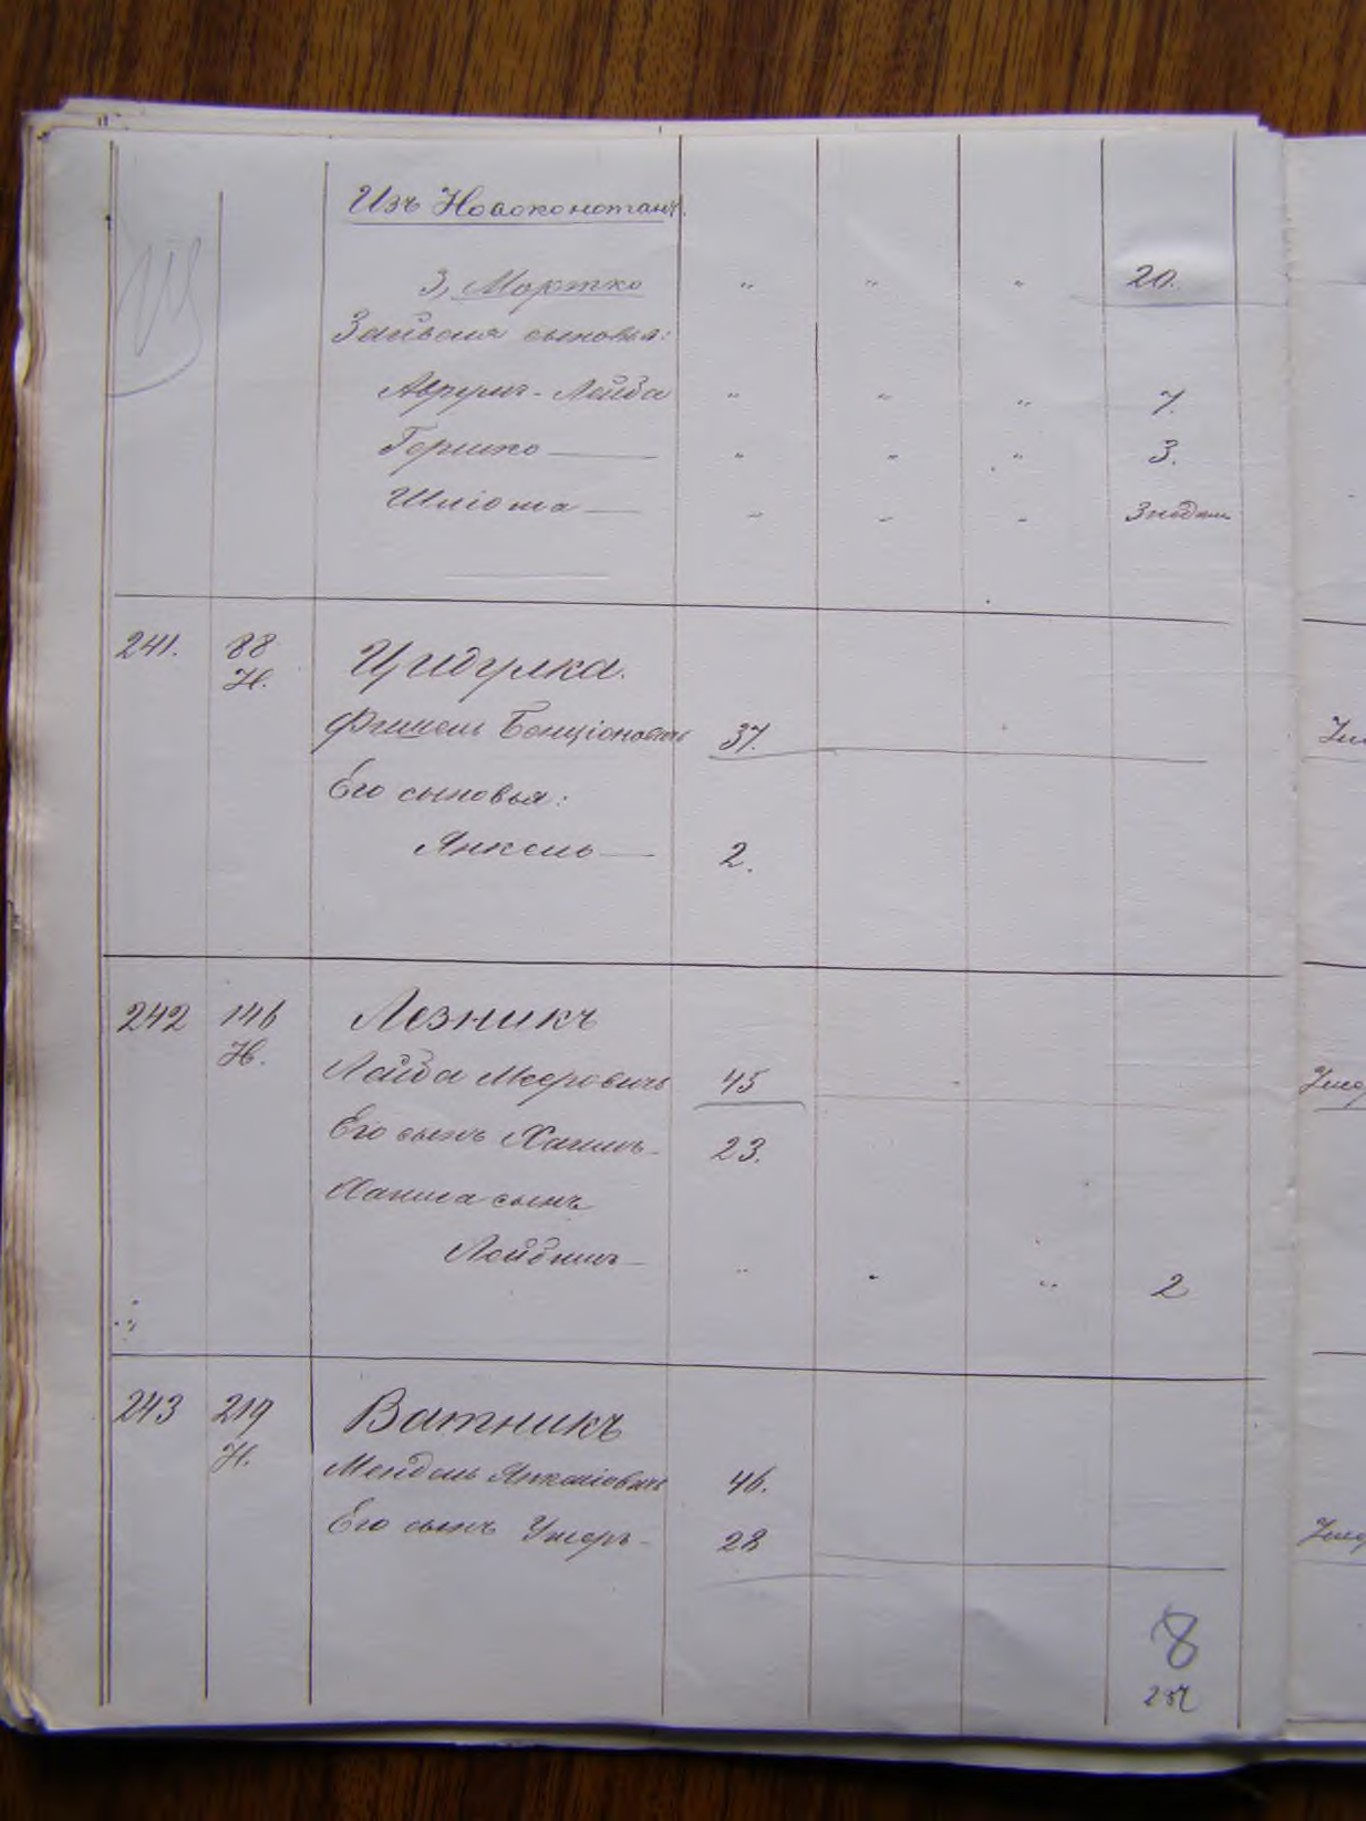 Изъ Новоконстан.
3, Мортко " " " 20.
сыновья:
Аврумъ-Лейба " " " 7.
Гершко " " " 3.
Шлiома " " " 3 недѣли
241. 88 Цидулка.
Н.
Фишель Бенцiоновичъ 37.
Его сыновья:
Янкель 2.
242 146 Лезникъ
Н.
Лейба Мееровичъ 45
Его сынъ Хаимъ 23.
Хаима сынъ
Лейбишъ " " " 2
243 219 Ватникъ
Н.
Мендель Янкелiовичъ 46.
Его сынъ Ушеръ 28
8